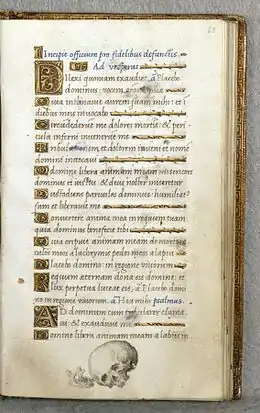 Incipit officium pro fidelibus defunctis.
Ad vesperas
Dilexi quoniam exaudiet añ Placebo
dominus: vocem
Quia inclinavit aurem suam mihi: et i
diebus meis invocabo
Circundederunt me dolores mortis: & peri
cula inferni invenerunt me
Tribulationem et dolorem inveni et nome
domini invocavi
O domine libera animam meam misericors
dominus et iustus & deus noster miseretur
Custodiens parvulos dominus: humiliat'
sum et liberavit me
Convertere anima mea in requiem tuam
quia dominus benefecit tibi
Quia eripuit animam meam de morte
culos meos a lachrymis pedes meos a lapsu
Placebo domino: in regione vivorum
Requiem aeternam dona eis domine: et
lux perpetua luceat eis, añ Placebo domi
no in regione vivorum. añ Hei mihi psalmus.
Ad dominum cum tribularer clama
vi: et exaudivit me
Domine libera animam meam a labiis in